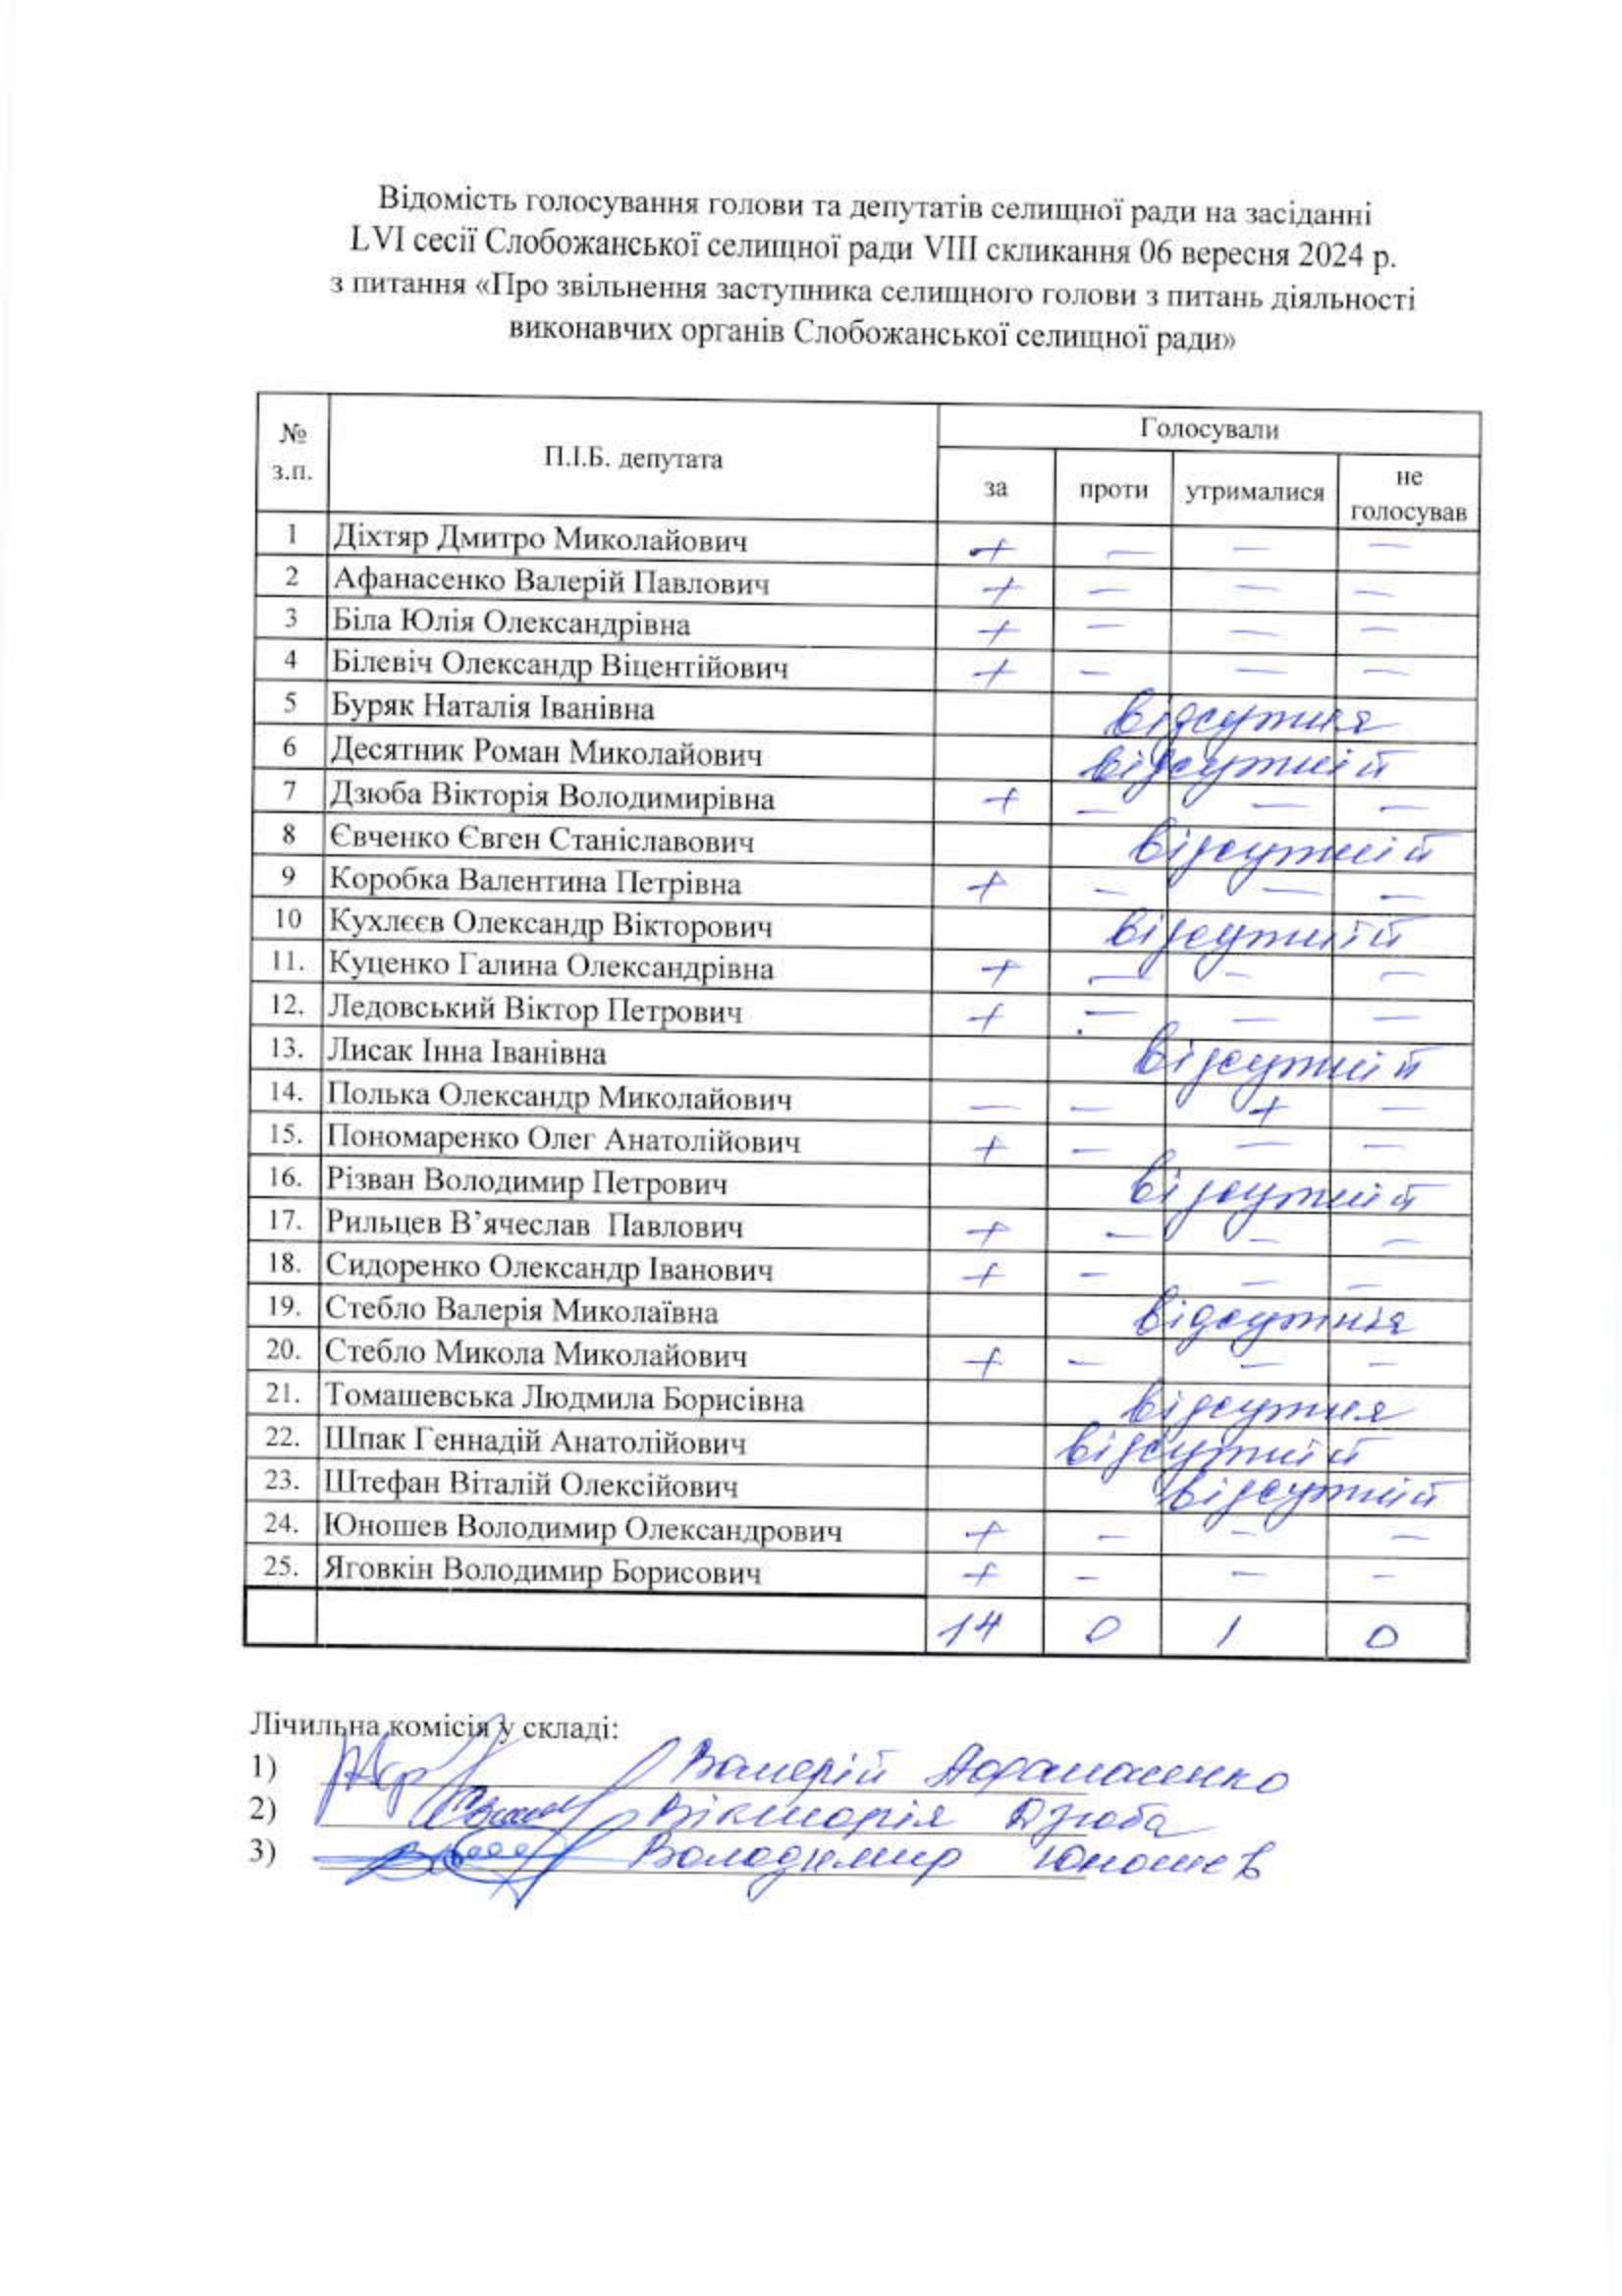 Відомість голосування голови та депутатів селищної ради на засіданні
LVI сесії Слобожанської селищної ради VIII скликання 06 вересня 2024 р.
з питання «Про звільнення заступника селищного голови з питань діяльності
виконавчих органів Слобожанської селищної ради»
№ з.п. П.І.Б. депутата Голосували
за проти утрималися не голосував
1 Діхтяр Дмитро Миколайович + — — —
2 Афанасенко Валерій Павлович + — — —
3 Біла Юлія Олександрівна + — — —
4 Білевіч Олександр Віцентійович + — — —
5 Буряк Наталія Іванівна відсутня
6 Десятник Роман Миколайович відсутній
7 Дзюба Вікторія Володимирівна + — — —
8 Євченко Євген Станіславович відсутній
9 Коробка Валентина Петрівна + — — —
10 Кухлєєв Олександр Вікторович відсутній
11. Куценко Галина Олександрівна + — — —
12. Ледовський Віктор Петрович + — — —
13. Лисак Інна Іванівна відсутній
14. Полька Олександр Миколайович — — + —
15. Пономаренко Олег Анатолійович + — — —
16. Різван Володимир Петрович відсутній
17. Рильцев В’ячеслав Павлович + — — —
18. Сидоренко Олександр Іванович + — — —
19. Стебло Валерія Миколаївна відсутня
20. Стебло Микола Миколайович + — — —
21. Томашевська Людмила Борисівна відсутня
22. Шпак Геннадій Анатолійович відсутній
23. Штефан Віталій Олексійович відсутній
24. Юношев Володимир Олександрович + — — —
25. Яговкін Володимир Борисович + — — —
14 0 1 0
Лічильна комісія у складі:
1) Валерій Афанасенко
2) Вікторія Дзюба
3) Володимир Юношев